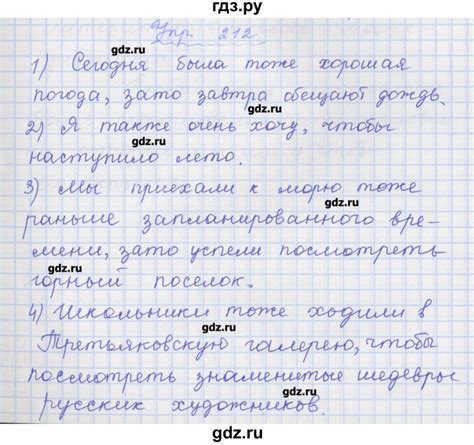 гдз.ру
Упр. 212
gdz.ru
gdz.ru
1) Сегодня была тоже хорошая
gdz.ru
погода, зато завтра обещают дождь.
gdz.ru
gdz.ru
2) Я также очень хочу, чтобы
наступило лето.
gdz.ru
gdz.ru
3) Мы приехали к морю тоже
gdz.ru
раньше запланированного вре-
gdz.ru
мени, зато успели посмотреть
gdz.ru
горный поселок.
gdz.ru
gdz.ru
4) Школьники тоже ходили в
gdz.ru
Третьяковскую галерею, чтобы
gdz.ru
посмотреть знаменитые шедевры
gdz.ru
русских художников.
gdz.ru
гдз.ру